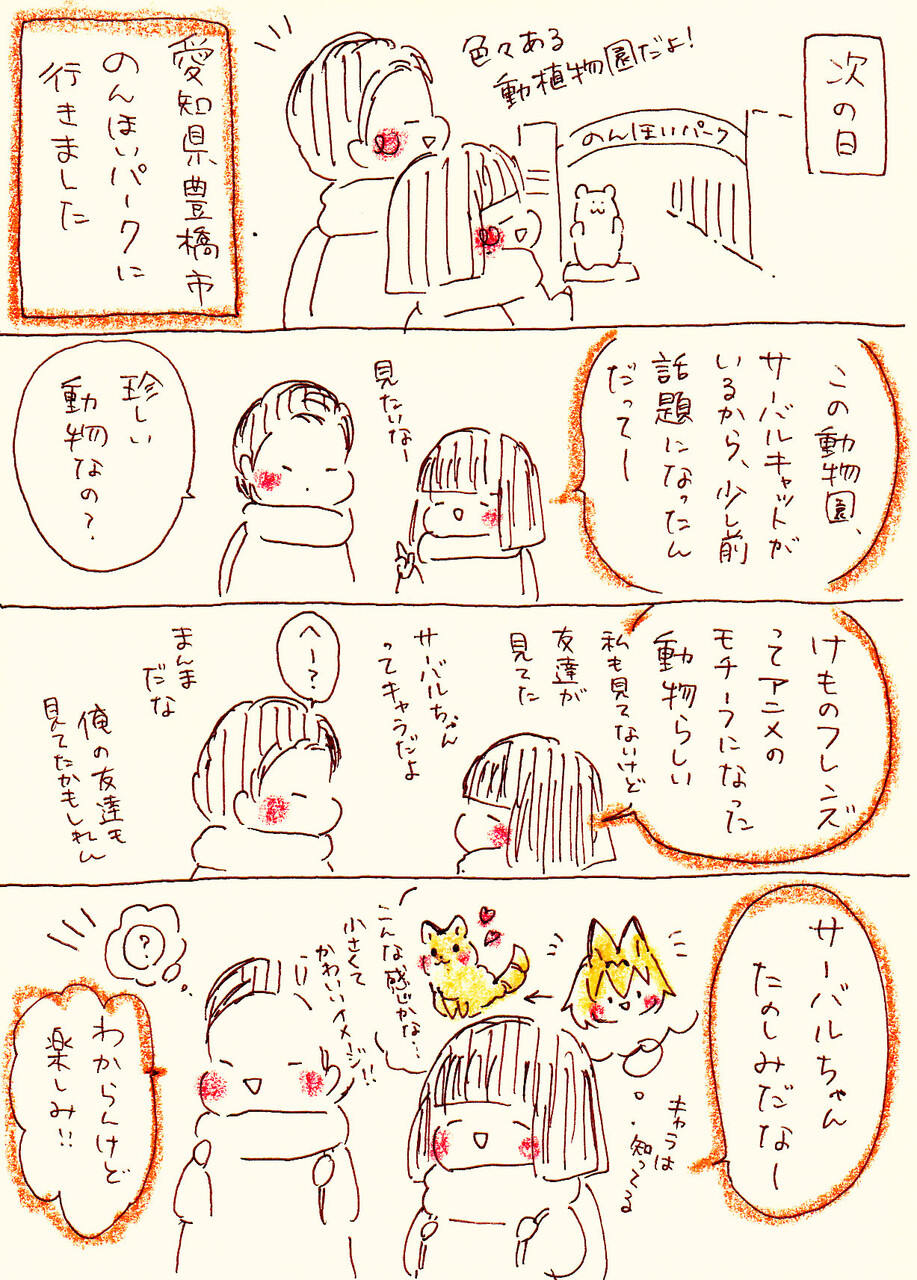 次の日
色々ある
動植物園だよ!
のんほいパーク
愛知県豊橋市
のんほいパークに
行きました
この動物園、
サーバルキャットが
いるから、少し前
話題になったん
だってー
見たいなー
珍しい
動物なの?
けものフレンズ
ってアニメの
モチーフになった
動物らしい
私も見てないけど
友達が
見てた
サーバルちゃん
ってキャラだよ
へー?
まんま
だな
俺の友達も
見てたかもしれん
サーバルちゃん
たのしみだなー
キャラは
知ってる
こんな感じかな…
小さくて
かわいいイメージ!!
?
わからんけど
楽しみ!!